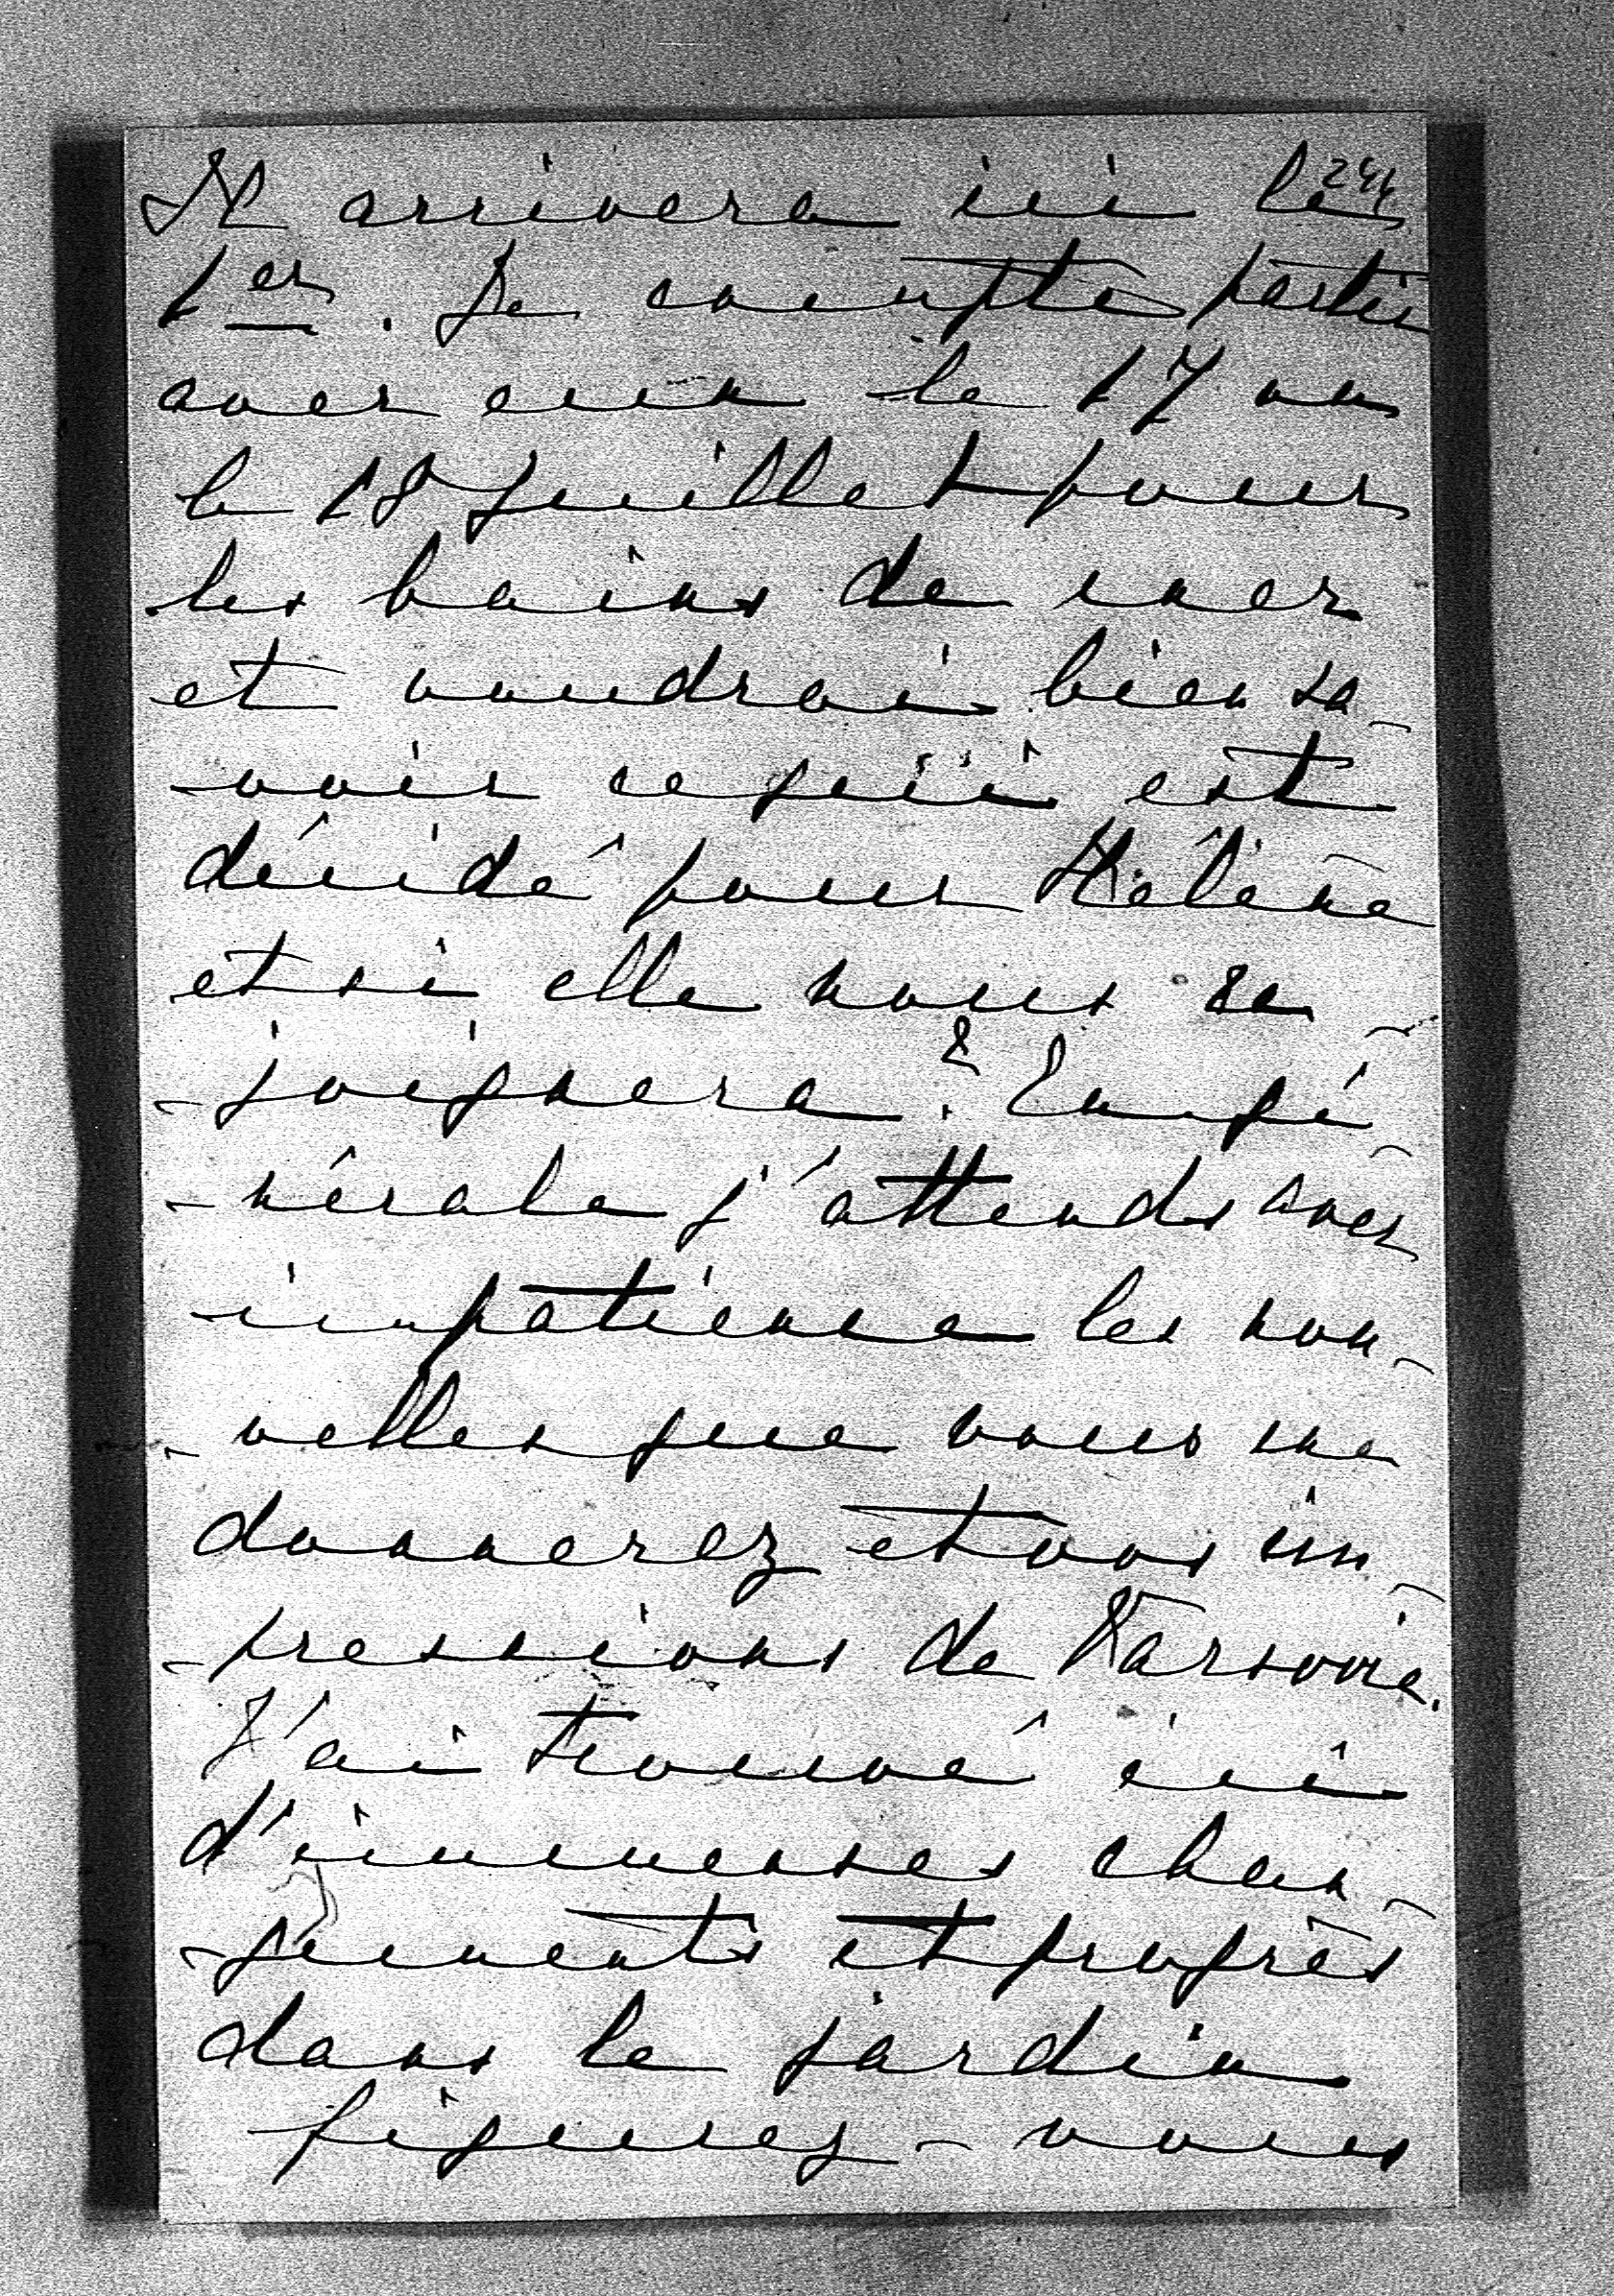 244
Il arrivera ici le
1er. Je compte partir
avec eux le 17 ou
le 18 Juillet pour
les bains de mer
et voudrais bien sa-
-voir ce qui est
décidé pour Hélène
et si elle nous re-
-joignera? En gé-
-nérale j'attends avec
impatience les nou-
-velles que vous me
donnerez et vos im-
-pressions de Varsovie.
J'ai trouvé ici
d'immenses chan-
-gements et progrès
dans le jardin
figurez-vous